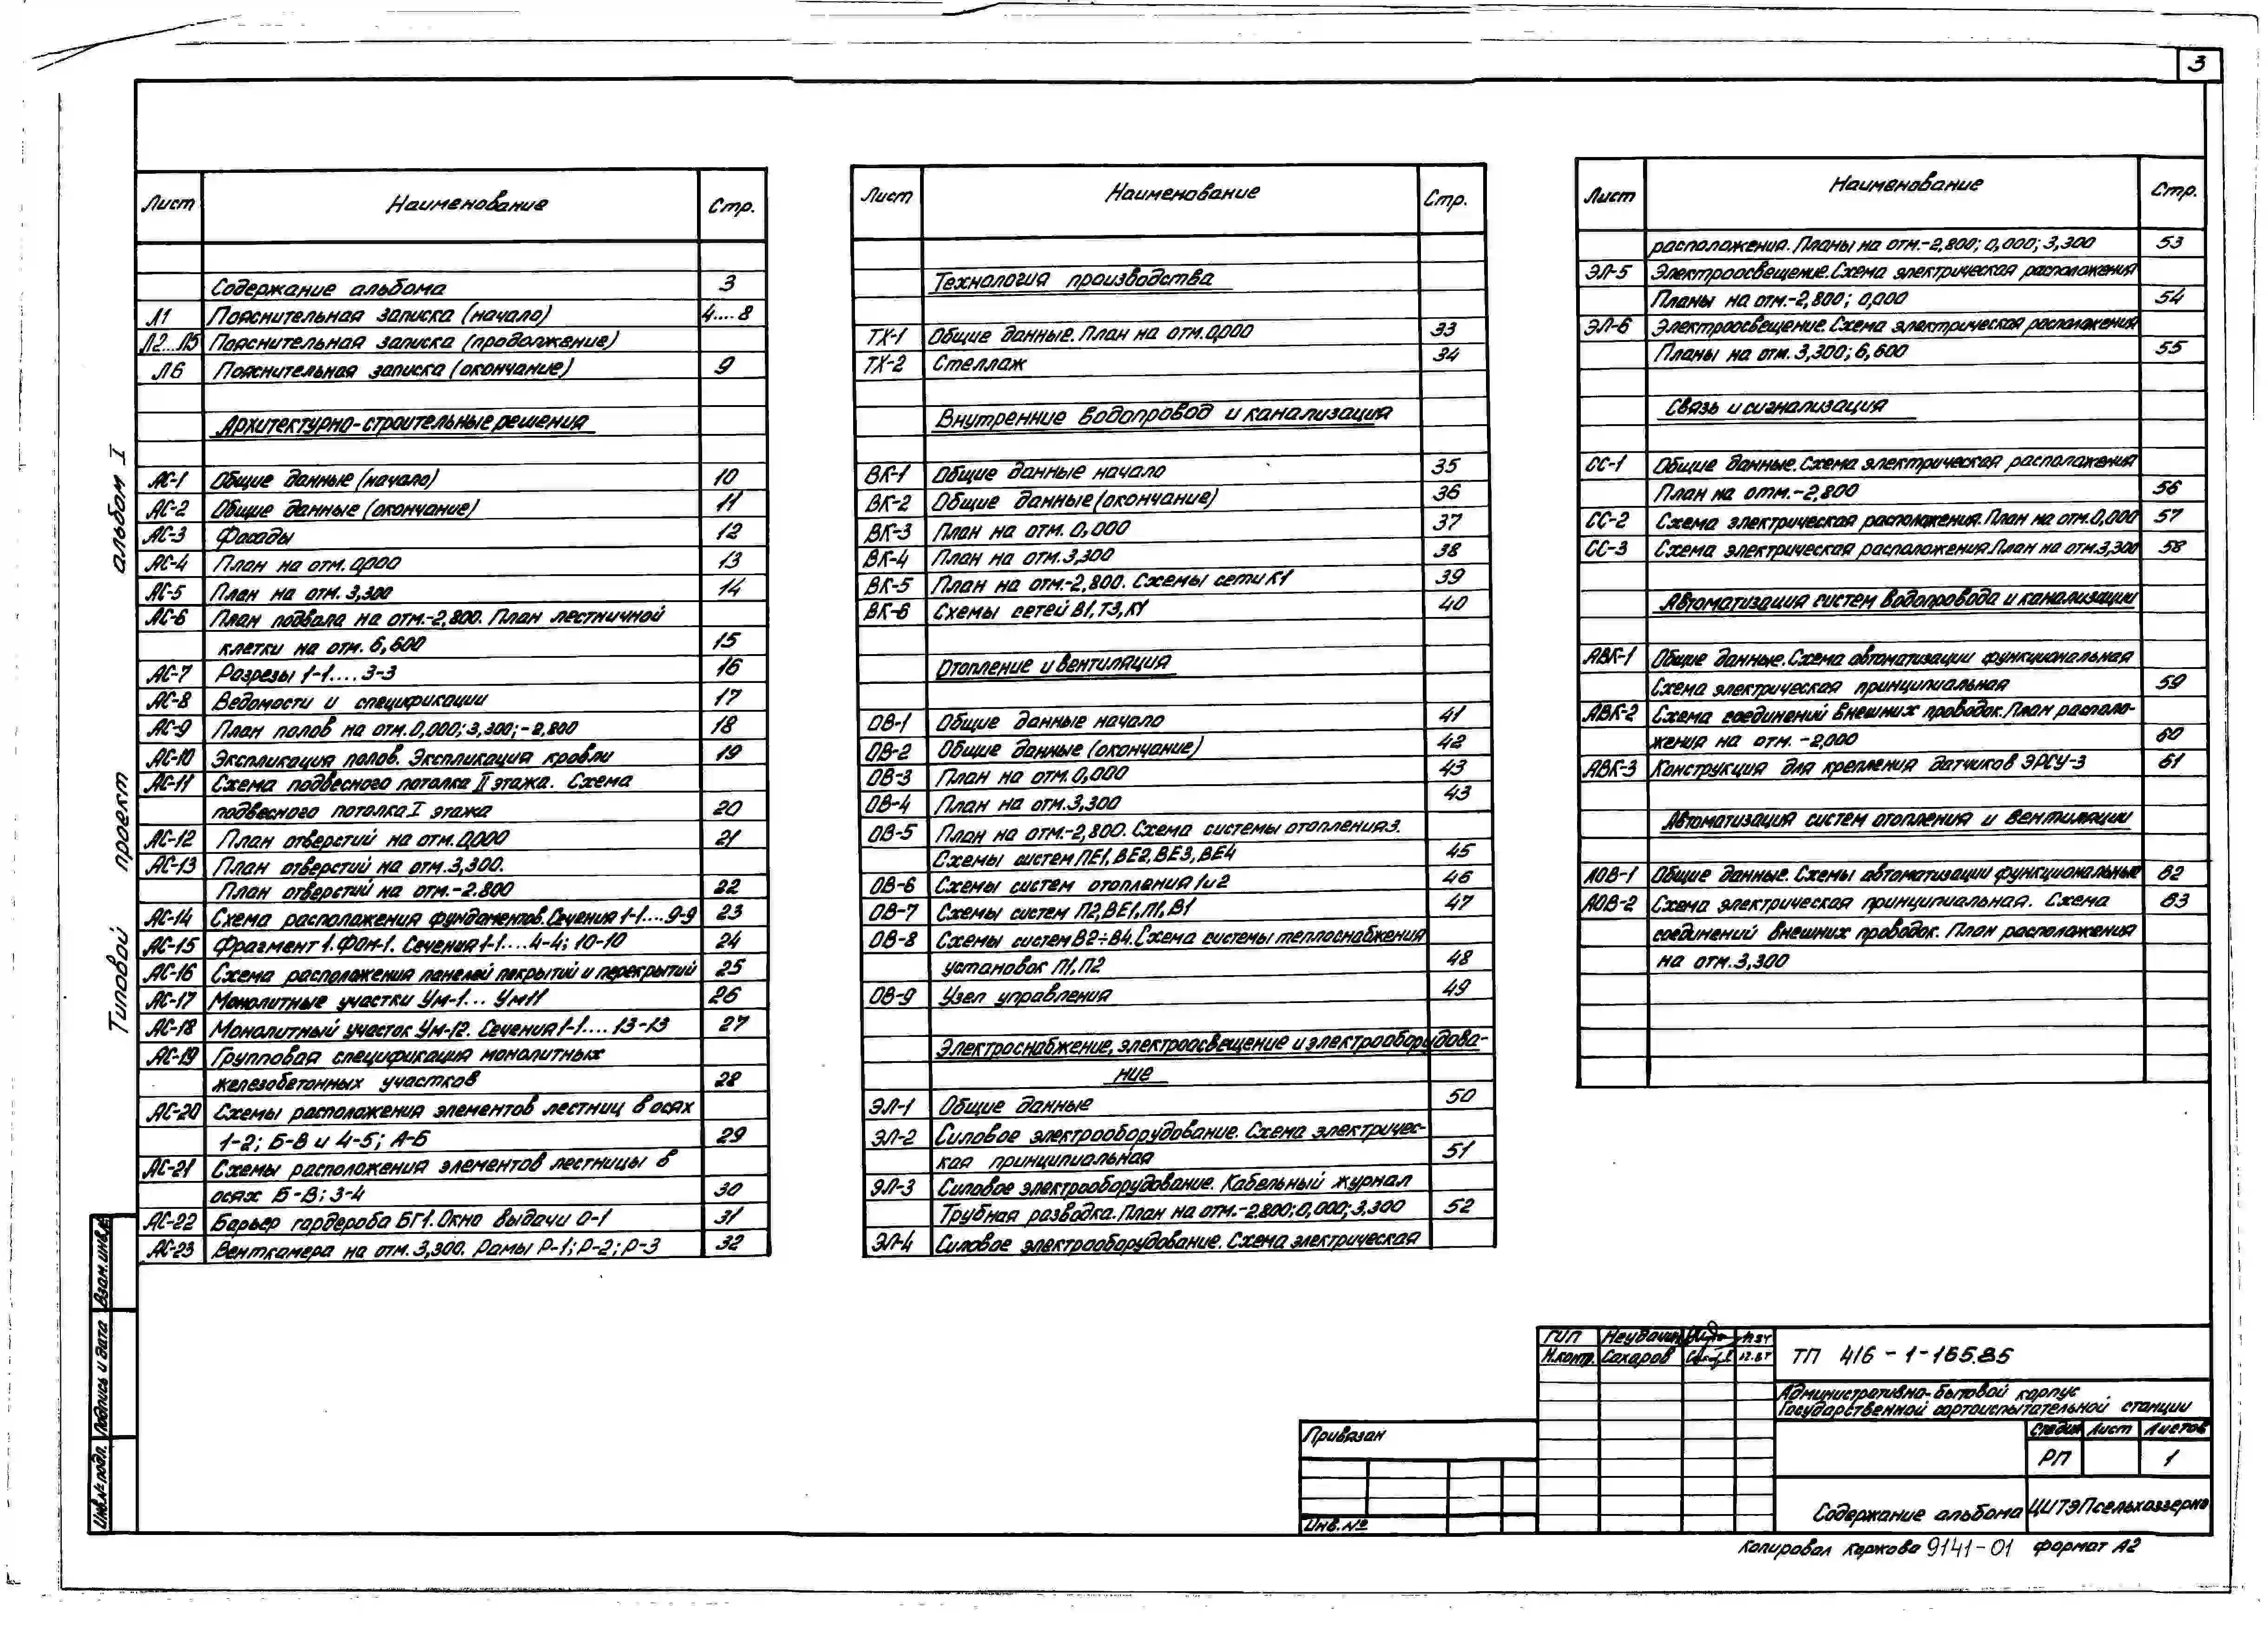 3
Лист Наименование Стр.
Содержание альбома 3
Л1 Пояснительная записка (начало) 4....8
Л2...Л5 Пояснительная записка (продолжение)
Л6 Пояснительная записка (окончание) 9
Архитектурно-строительные решения
АС-1 Общие данные (начало) 10
АС-2 Общие данные (окончание) 11
АС-3 Фасады 12
АС-4 План на отм. 0,000 13
АС-5 План на отм. 3,300 14
АС-6 План подвала на отм.-2,800. План лестничной
клетки на отм. 6,600 15
АС-7 Разрезы 1-1....3-3 16
АС-8 Ведомости и спецификации 17
АС-9 План полов на отм. 0,000; 3,300; -2,800 18
АС-10 Экспликация полов. Экспликация кровли 19
АС-11 Схема подвесного потолка II этажа. Схема
подвесного потолка I этажа 20
АС-12 План отверстий на отм. 0,000 21
АС-13 План отверстий на отм. 3,300.
План отверстий на отм. -2.800 22
АС-14 Схема расположения фундаментов. Сечения 1-1....9-9 23
АС-15 Фрагмент 1. ФОМ-1. Сечения 1-1....4-4; 10-10 24
АС-16 Схема расположения панелей покрытий и перекрытий 25
АС-17 Монолитные участки Ум-1... Ум11 26
АС-18 Монолитный участок Ум-12. Сечения 1-1.... 13-13 27
АС-19 Групповая спецификация монолитных
железобетонных участков 28
АС-20 Схемы расположения элементов лестниц в осях
1-2; Б-В и 4-5; А-Б 29
АС-21 Схемы расположения элементов лестницы в
осях Б-В; 3-4 30
АС-22 Барьер гардероба БГ1. Окно выдачи О-1 31
АС-23 Венткамера на отм. 3,300. Рамы Р-1; Р-2; Р-3 32
Лист Наименование Стр.
Технология производства
ТХ-1 Общие данные. План на отм. 0,000 33
ТХ-2 Стеллаж 34
Внутренние водопровод и канализация
ВК-1 Общие данные начало 35
ВК-2 Общие данные (окончание) 36
ВК-3 План на отм. 0,000 37
ВК-4 План на отм. 3,300 38
ВК-5 План на отм.-2,800. Схемы сети К1 39
ВК-6 Схемы сетей В1, Т3, К1 40
Отопление и вентиляция
ОВ-1 Общие данные начало 41
ОВ-2 Общие данные (окончание) 42
ОВ-3 План на отм. 0,000 43
ОВ-4 План на отм. 3,300 43
ОВ-5 План на отм.-2,800. Схема системы отопления 3.
Схемы систем ПЕ1, ВЕ2, ВЕ3, ВЕ4 45
ОВ-6 Схемы систем отопления 1и2 46
ОВ-7 Схемы систем П2, ВЕ1, П1, В1 47
ОВ-8 Схемы систем В2÷В4. Схема системы теплоснабжения
установок П1, П2 48
ОВ-9 Узел управления 49
Электроснабжение, электроосвещение и электрооборудова-
ние
ЭЛ-1 Общие данные 50
ЭЛ-2 Силовое электрооборудование. Схема электричес-
кая принципиальная 51
ЭЛ-3 Силовое электрооборудование. Кабельный журнал
Трубная разводка. План на отм.-2.800; 0,000; 3,300 52
ЭЛ-4 Силовое электрооборудование. Схема электрическая
Лист Наименование Стр.
расположения. Планы на отм.-2,800; 0,000; 3,300 53
ЭЛ-5 Электроосвещение. Схема электрическая расположения
Планы на отм.-2,800; 0,000 54
ЭЛ-6 Электроосвещение. Схема электрическая расположения
Планы на отм. 3,300; 6,600 55
Связь и сигнализация
СС-1 Общие данные. Схема электрическая расположения
План на отм.-2,800 56
СС-2 Схема электрическая расположения. План на отм. 0,000 57
СС-3 Схема электрическая расположения. План на отм. 3,300 58
Автоматизация систем водопровода и канализации
АВК-1 Общие данные. Схема автоматизации функциональная
Схема электрическая принципиальная 59
АВК-2 Схема соединений внешних проводок. План располо-
жения на отм. -2,000 60
АВК-3 Конструкция для крепления датчиков ЭРСУ-3 61
Автоматизация систем отопления и вентиляции
АОВ-1 Общие данные. Схемы автоматизации функциональные 62
АОВ-2 Схема электрическая принципиальная. Схема 63
соединений внешних проводок. План расположения
на отм. 3,300
Типовой проект альбом I
Инв.№ подл. Подпись и дата Взам.инв.№
ГИП Неудачин 11.84
Н.контр. Сахаров 12.84
ТП 416-1-165.85
Административно-бытовой корпус
Государственной сортоиспытательной станции
Стадия Лист Листов
РП 1
Привязан
Инв.№
Содержание альбома ЦИТЭПсельхоззерно
Копировал Каржова 9141-01 формат А2